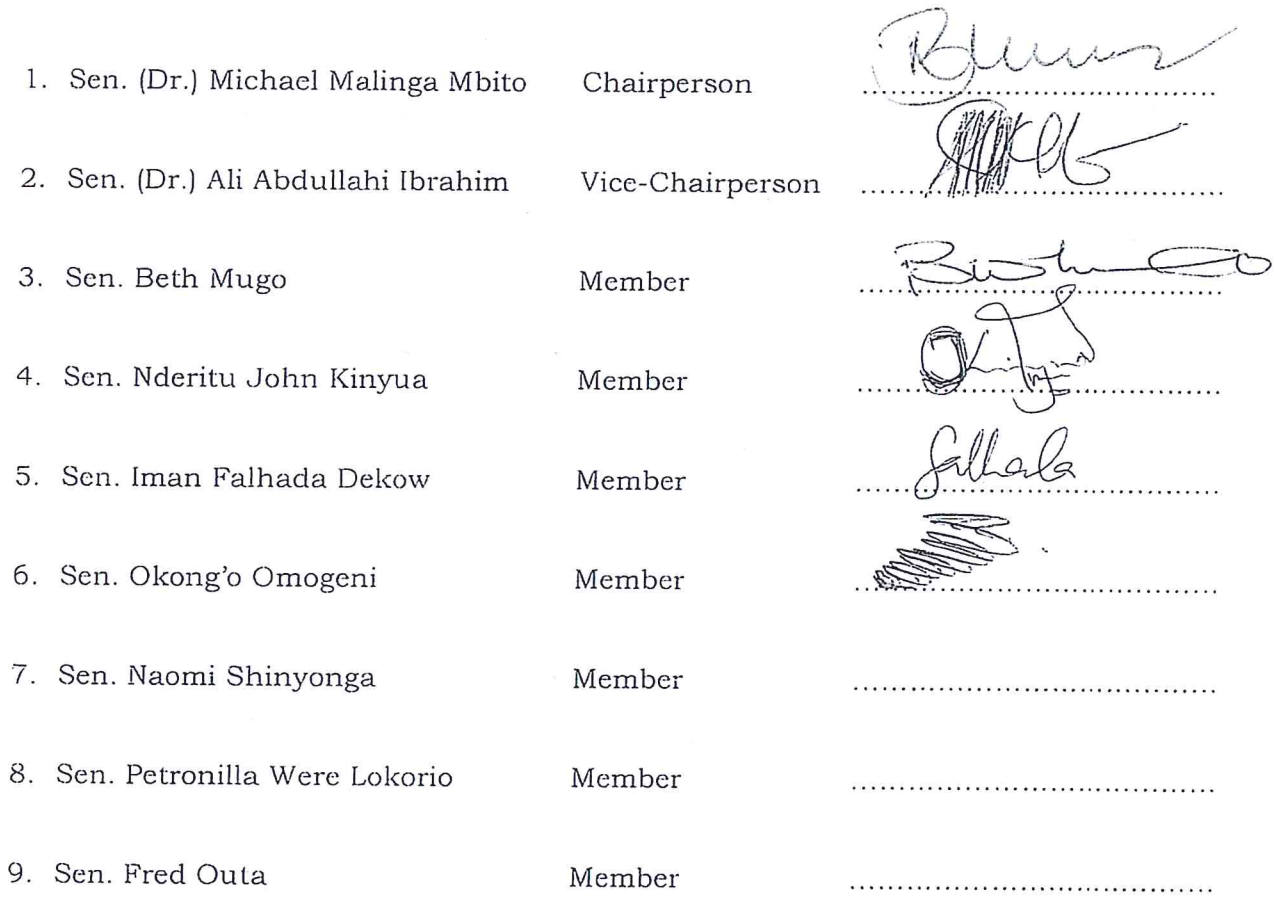 1. Sen. (Dr.) Michael Malinga Mbito Chairperson ........................................
2. Sen. (Dr.) Ali Abdullahi Ibrahim Vice-Chairperson ........................................
3. Sen. Beth Mugo Member ........................................
4. Sen. Nderitu John Kinyua Member ........................................
5. Sen. Iman Falhada Dekow Member ........................................
6. Sen. Okong'o Omogeni Member ........................................
7. Sen. Naomi Shinyonga Member ........................................
8. Sen. Petronilla Were Lokorio Member ........................................
9. Sen. Fred Outa Member ........................................